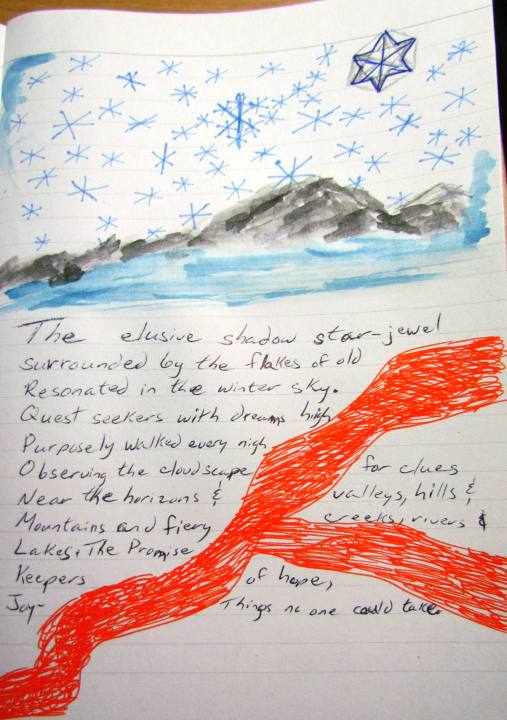 The elusive shadow star-jewel
surrounded by the flakes of old
Resonated in the winter sky.
Quest seekers with dreams high
Purposely walked every nigh
Observing the cloudscape for clues
Near the horizons & valleys, hills &
Mountains and fiery creeks, rivers &
Lakes. The Promise
Keepers of hope,
Joy- Things no one could take.